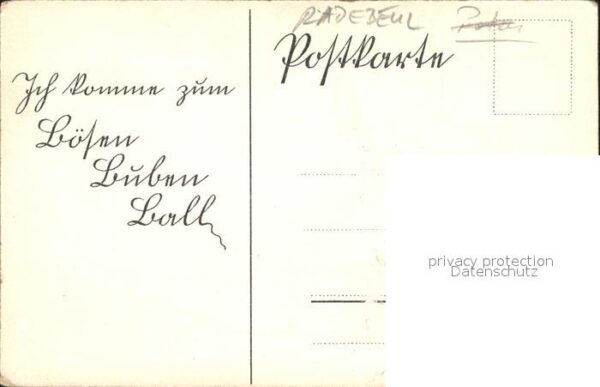 RADEBEUL
Postkarte
Ich komme zum
Bösen
Buben
Ball
privacy protection
Datenschutz